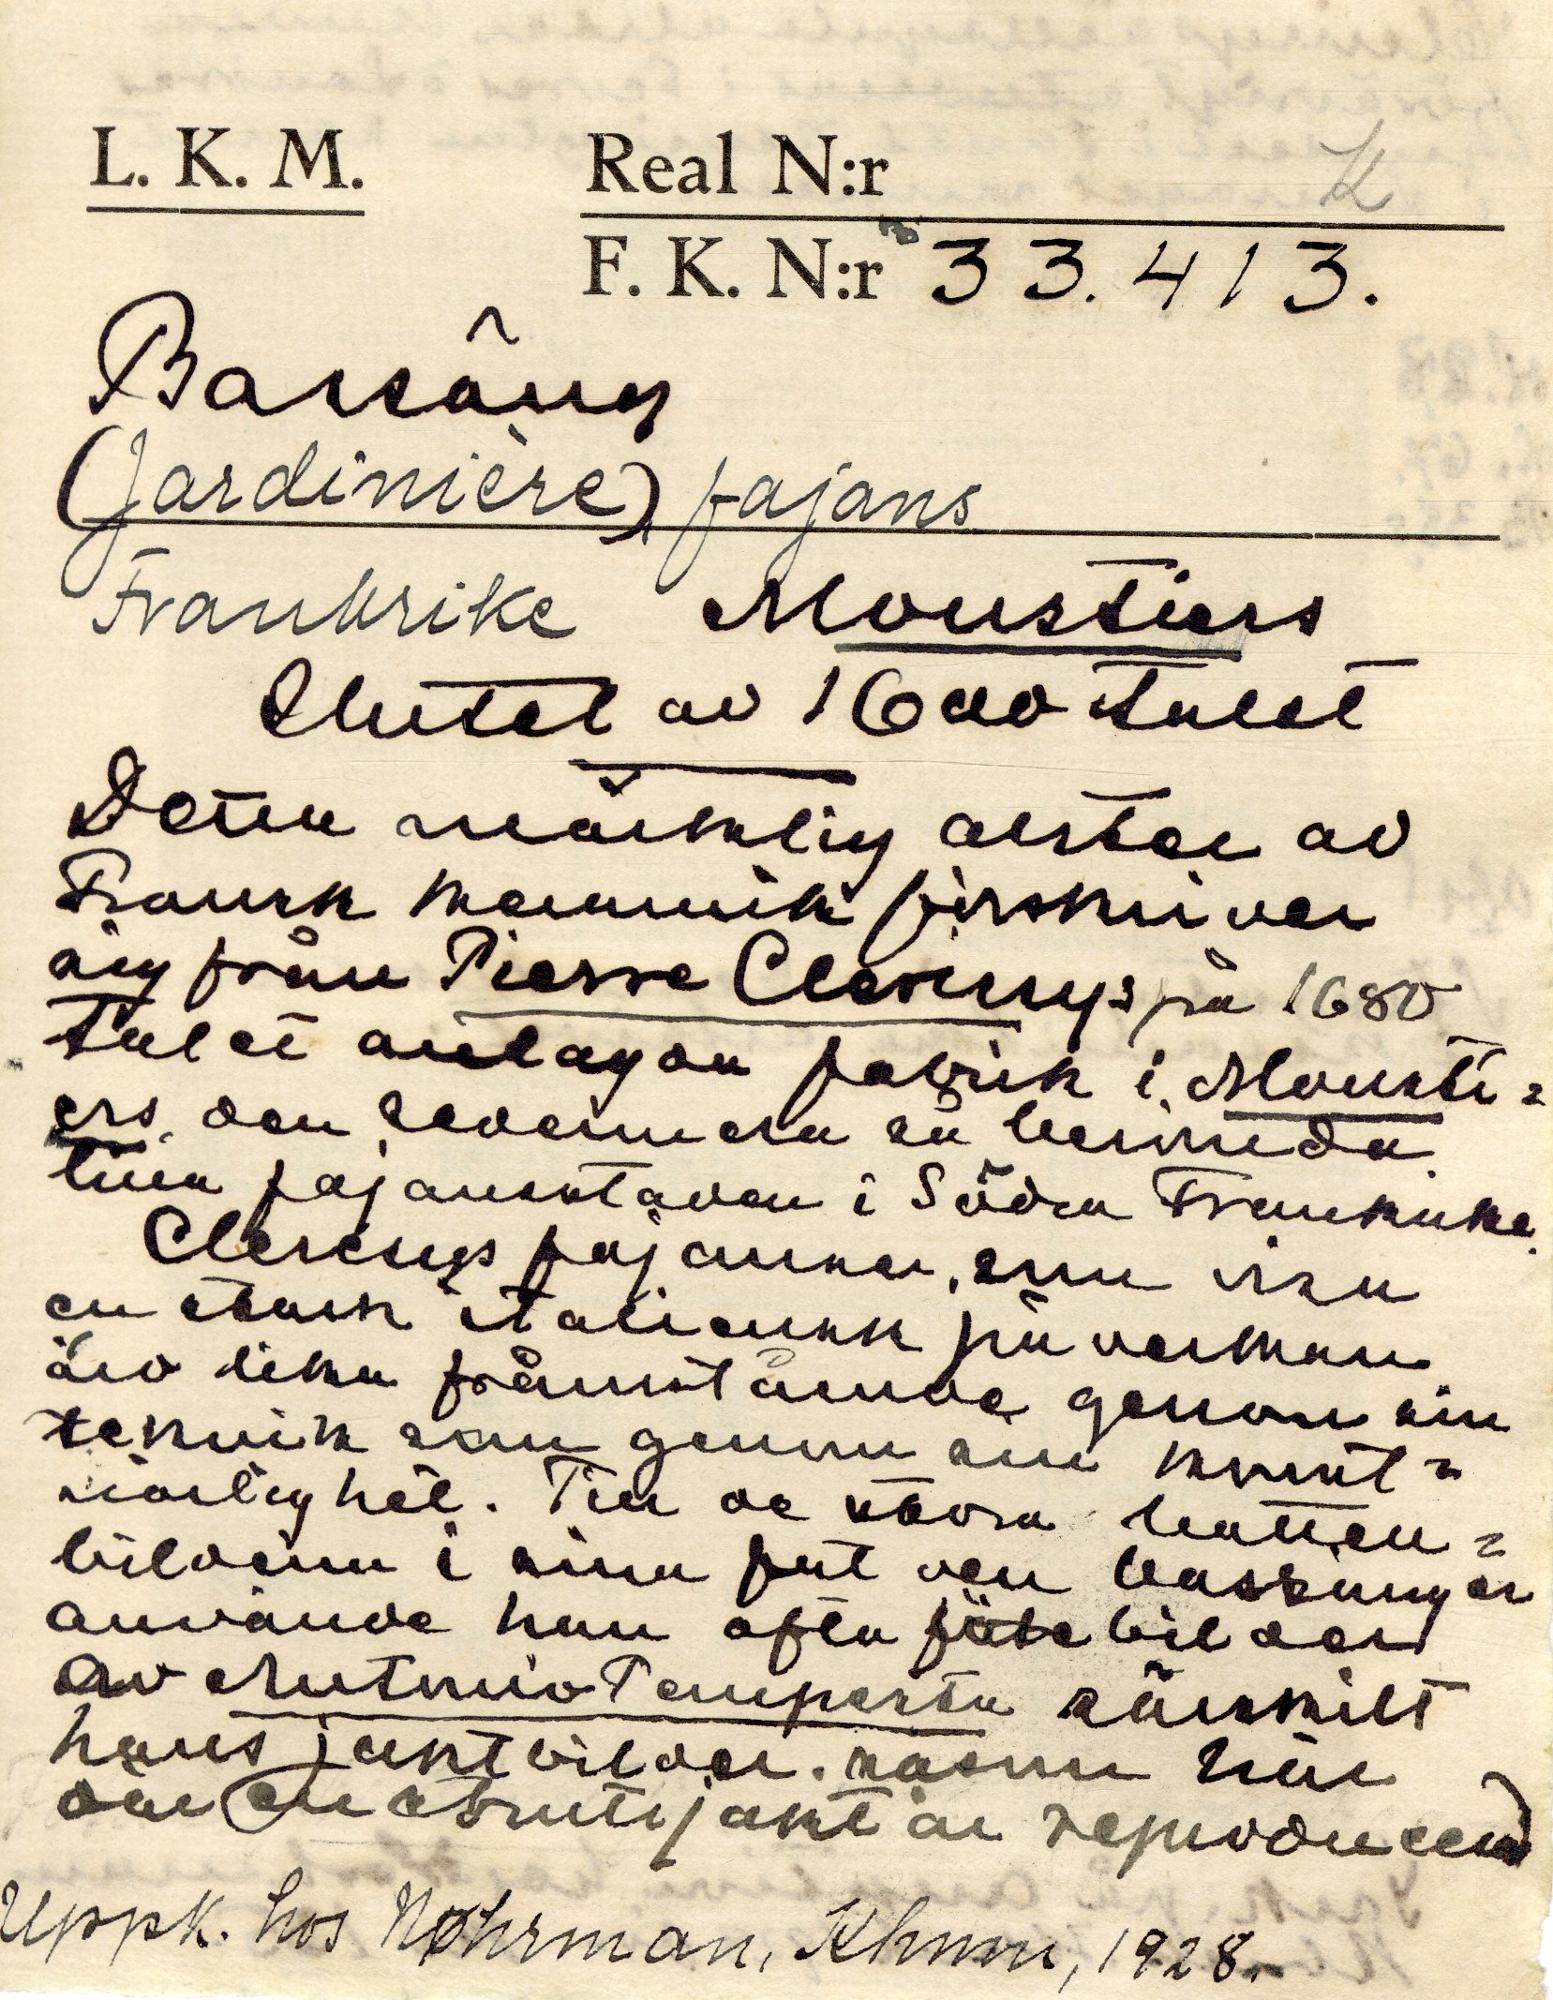 L. K. M.
Real N:r K
F. K. N:r 33.413.
Bassäng
(Jardinière) fajans
Frankrike Moustiers
Slutet av 1600 talet
Detta märklig alster av
Fransk keramik förskriver
sig från Pierre Clerissys på 1680
talet anlagda fabrik i Mousti=
ers, den sedermera så berömda
lilla fajansstaden i Södra Frankrike.
Clerisys fajanser, som visa
en stark italiensk påverkan
äro lika framstående genom sin
teknik som genom sin konst=
närlighet. Till de stora botten=
bilderna i sina fat och bassänger
använde han ofta förebilder
av Antonio Tempesta särskilt
hans jaktbilder. såsom här
där en strutsjakt är reproducerad
Uppk. hos Nøhrman, Khmn, 1928.